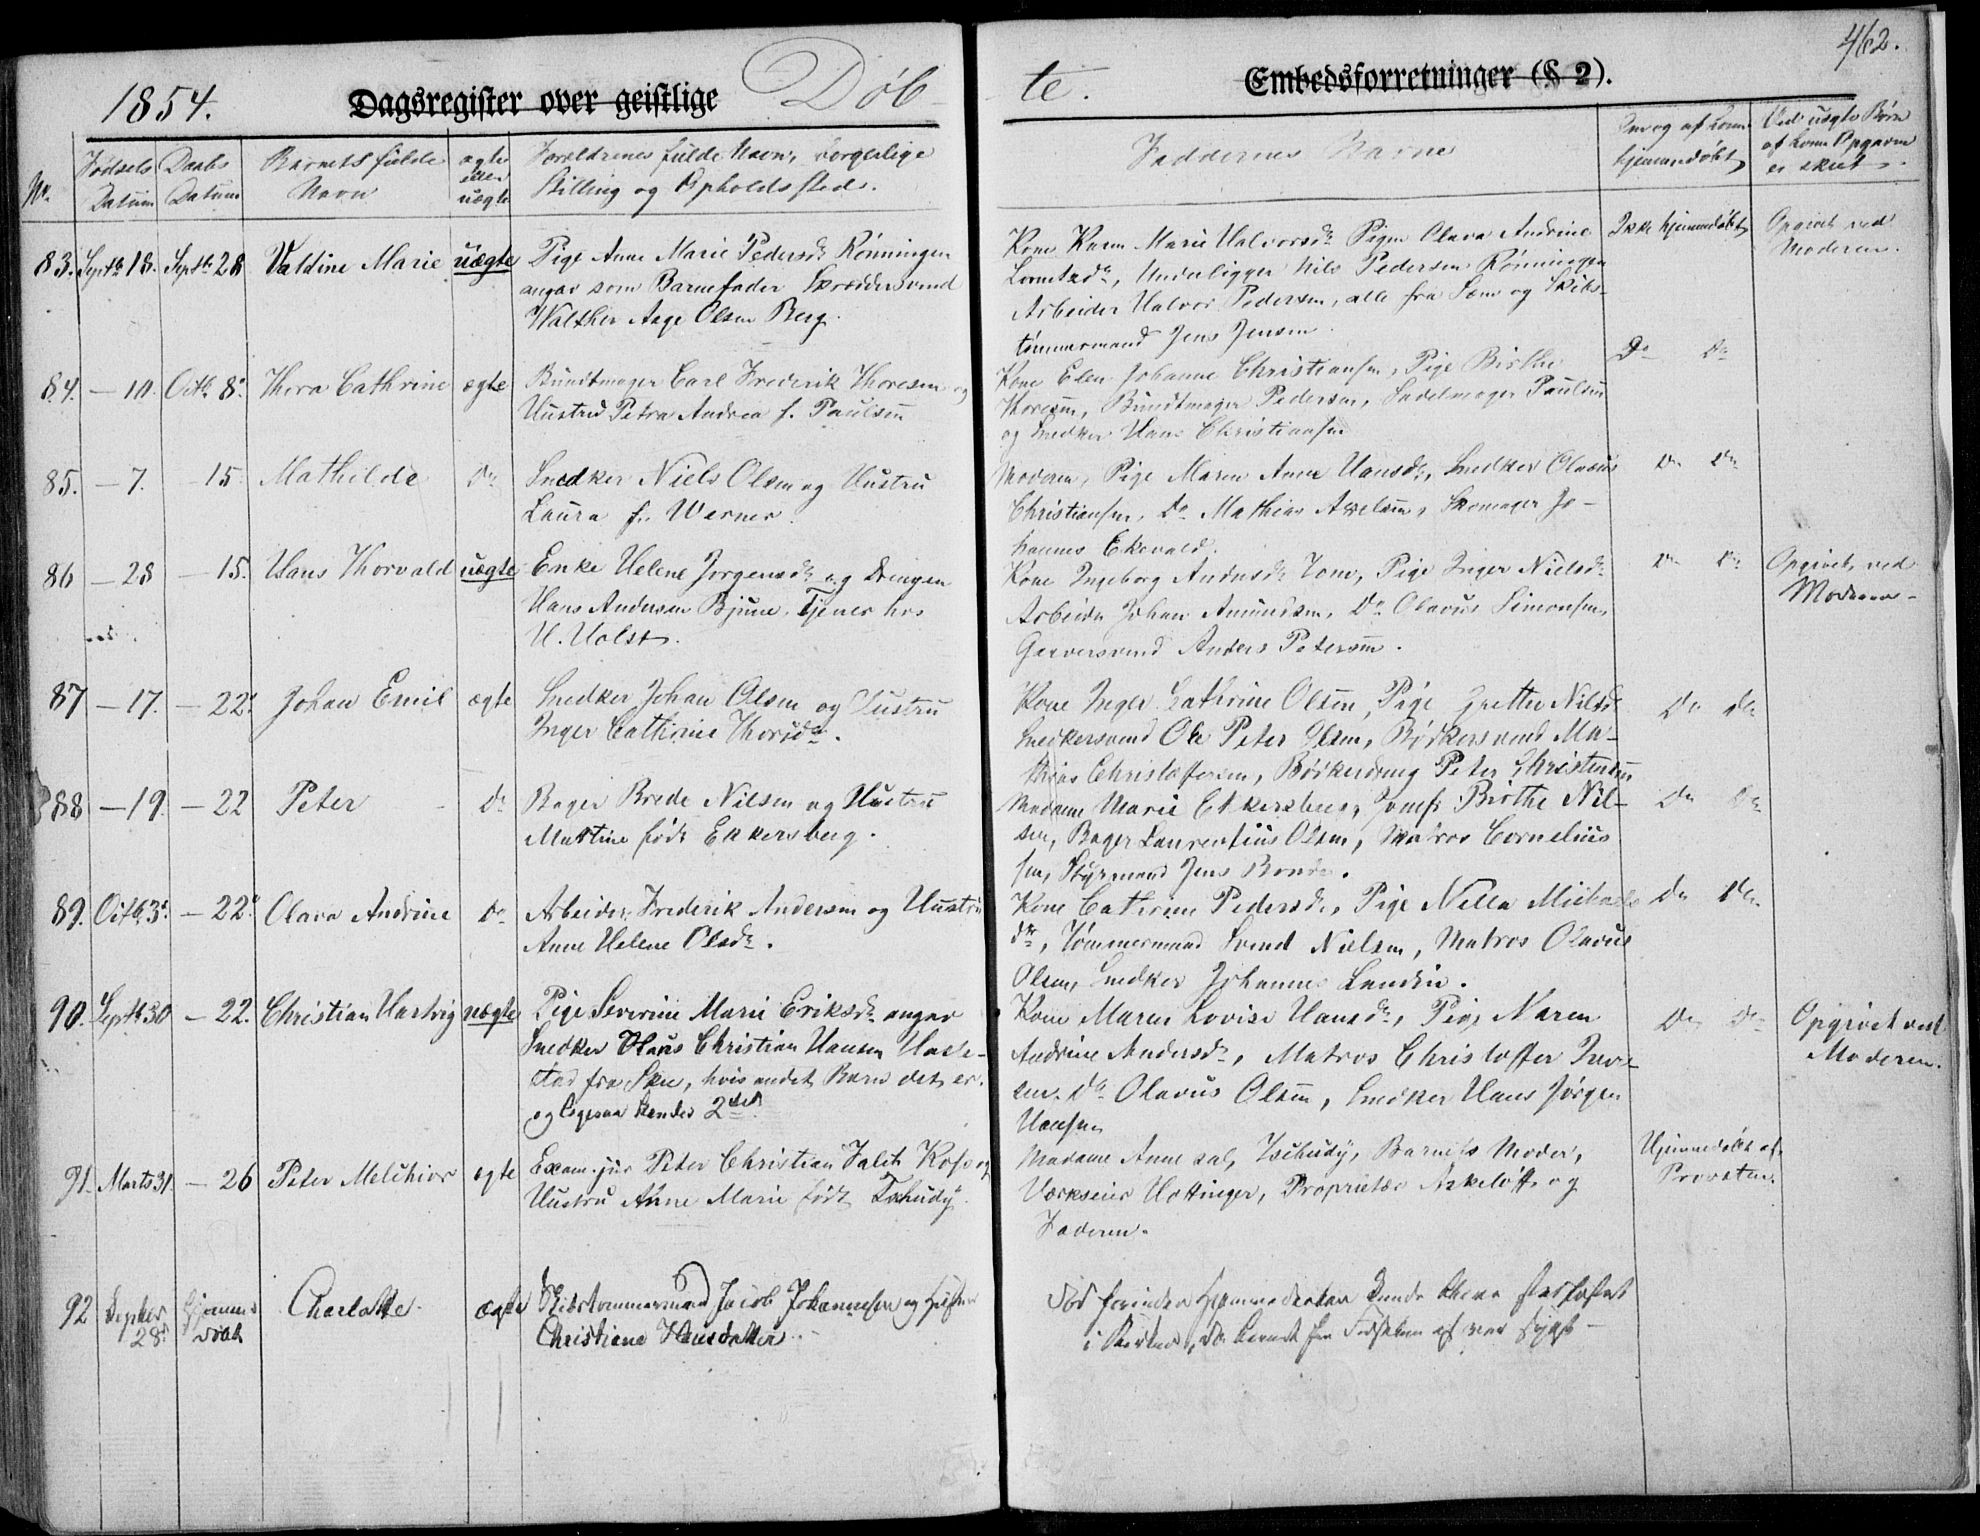 462.
1854. Dagsregister over geistlige Døb-
te. Embedsforretninger (§ 2).
No. Fødsels Datum Daabs Datum Barnets fulde Navn ægte eller uægte Forældrenes fulde Navn, borgerlige Stilling og Opholdssted.
Faddernes Navne
Om og af hvem hjemmedøbt
Ved uægte Børn af hvem Opgaven er skeet.
83. Septb 18. Septb 28 Valdine Marie uægte Pige Anne Marie Pedersdr Rønningen
angav som Barnefader Skræddersvend
Walther Aage Olsen Berg.
Kone Karen Marie Halvorsdr Pigen Olava Andrine
Underligger Nils Pedersen Rønningen
Arbeider Halvor Pedersen, alle fra Sem og Skibs-
tømmermand Jens Jensen.
Ikke hjemmedøbt
Opgivet ved
Moderen.
84. – 10. Octb. 8. Thora Cathrine ægte Bundtmager Carl Frederik Thoresen og
Hustru Petra Andrea f. Paulsen
Kone Elen Johanne Christiansen, Pige Birthe
Thoresen, Bundtmager Pedersen, Sadelmager Paulsen
og Snedker Hans Christiansen
Do Do
85. – 7. 15. Mathilde Do Snedker Niels Olsen og Hustru
Laura f. Werner.
Moderen, Pige Maren Anne Hansdr, Snedker Olaus
Christiansen, Do Mathias Axelsen, Skomager Jo-
hannes Ekevald.
Do Do
86 – 28 – 15. Hans Thorvald uægte Enke Helene Jørgensdr og Drengen
Hans Andersen Bjune, Tjener hos
H. Holst.
Kone Ingeborg Andersdr Tom, Pige Inger Nielsdr
Arbeider Johan Amundsen, Do Olavus Simonsen,
Garversvend Anders Petersen.
Do Do
Opgivet ved
Moderen –
87 – 17. – 22. Johan Emil ægte Snedker Johan Olsen og Hustru
Inger Cathrine Thorsdr.
Kone Inger Cathrine Olsen, Pige Grethe Nilsdr
Snedkersvend Ole Peter Olsen, Bødkersvend Ma-
thias Christoffersen, Bødkerdreng Peter Christensen
Do Do
88 – 19. – 22 Peter Do Bager Brede Nilsen og Hustru
Martine født Ekkersberg.
Madame Marie Ekkersberg, Jomfr Birthe Nil-
sen, Bager Laurentius Olsen, Matros Cornelius
sen, Styrmand Jens Bonde.
Do Do
89. Octb. 3. – 22. Olava Andrine Do Arbeider Frederik Andersen og Hustru
Anne Helene Olsdr.
Kone Cathrine Pedersdr, Pige Nilla Michaels
dtr, Tømmermand Svend Nielsen, Matros Olavus
Olsen, Snedker Johannes Lundin.
Do Do
90. Septb 30 – 22. Christian Hartvig uægte Pige Severine Marie Eriksdr angav
Snedker Hans Christian Hansen Hasle-
stad fra Skee, hvis andet Barn det er.
og ligesaa hendes 2det
Kone Maren Lovise Hansdr, Pige Karen
Andrine Andersdr, Matros Christoffer Iver-
sen. Do Olavus Olsen, Snedker Hans Jørgen
Hansen
Do Do
Opgivet ved
Moderen.
91. Marts 31. – 26 Peter Melchior ægte Exam. jur. Peter Christian Valet Koss og
Hustru Anne Marie født Tschudy.
Madame Anne sal. Tschudy, Barnets Moder,
Værkseier Hottinger, Proprietær Askeløff og
Faderen.
Hjemmedøbt af
Provsten.
92 Septber 28 hjemme døbt Charlotte. ægte Skibstømmermand Jacob Johannesen og Hustru
Christiane Hansdatter.
Død forinden Hjemmedaaben kunde blive stadfæstet
i Kirken, da Barnet fra Fødselen af var sygt –